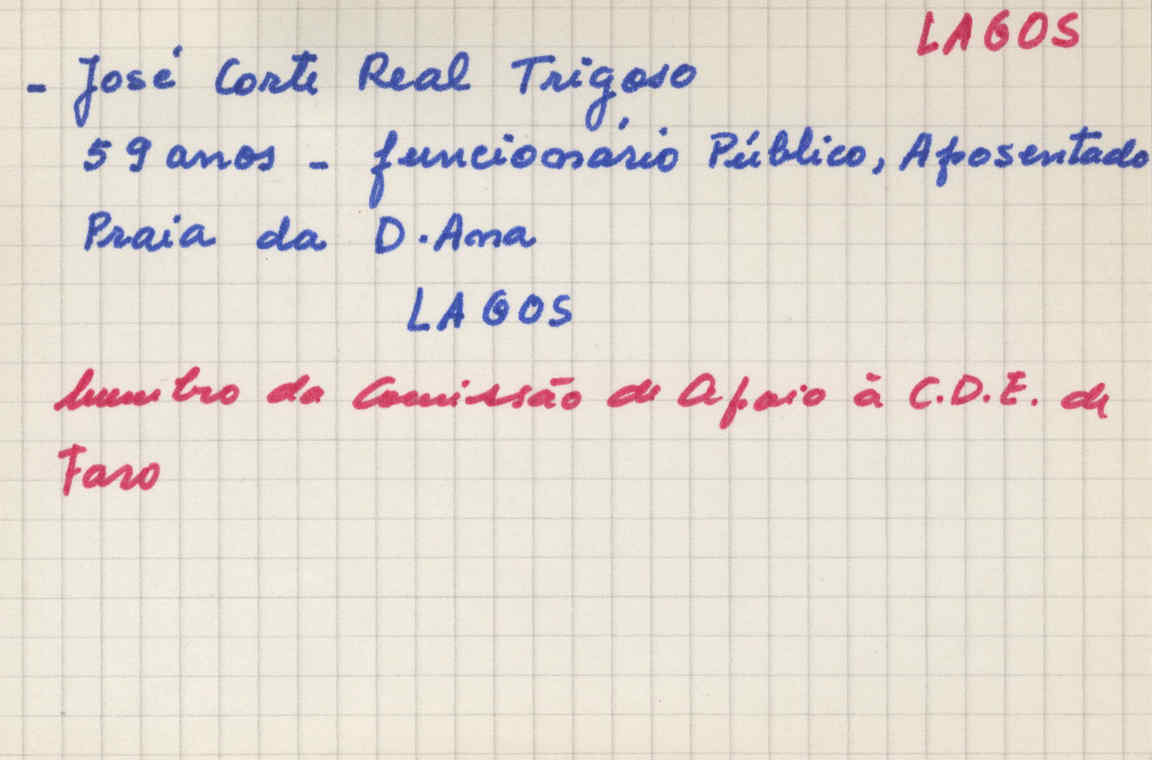 LAGOS
- José Corte Real Trigoso
59 anos - funcionário Público, Aposentado
Praia da D. Ana
LAGOS
Membro da Comissão de Apoio à C.D.E. de
Faro